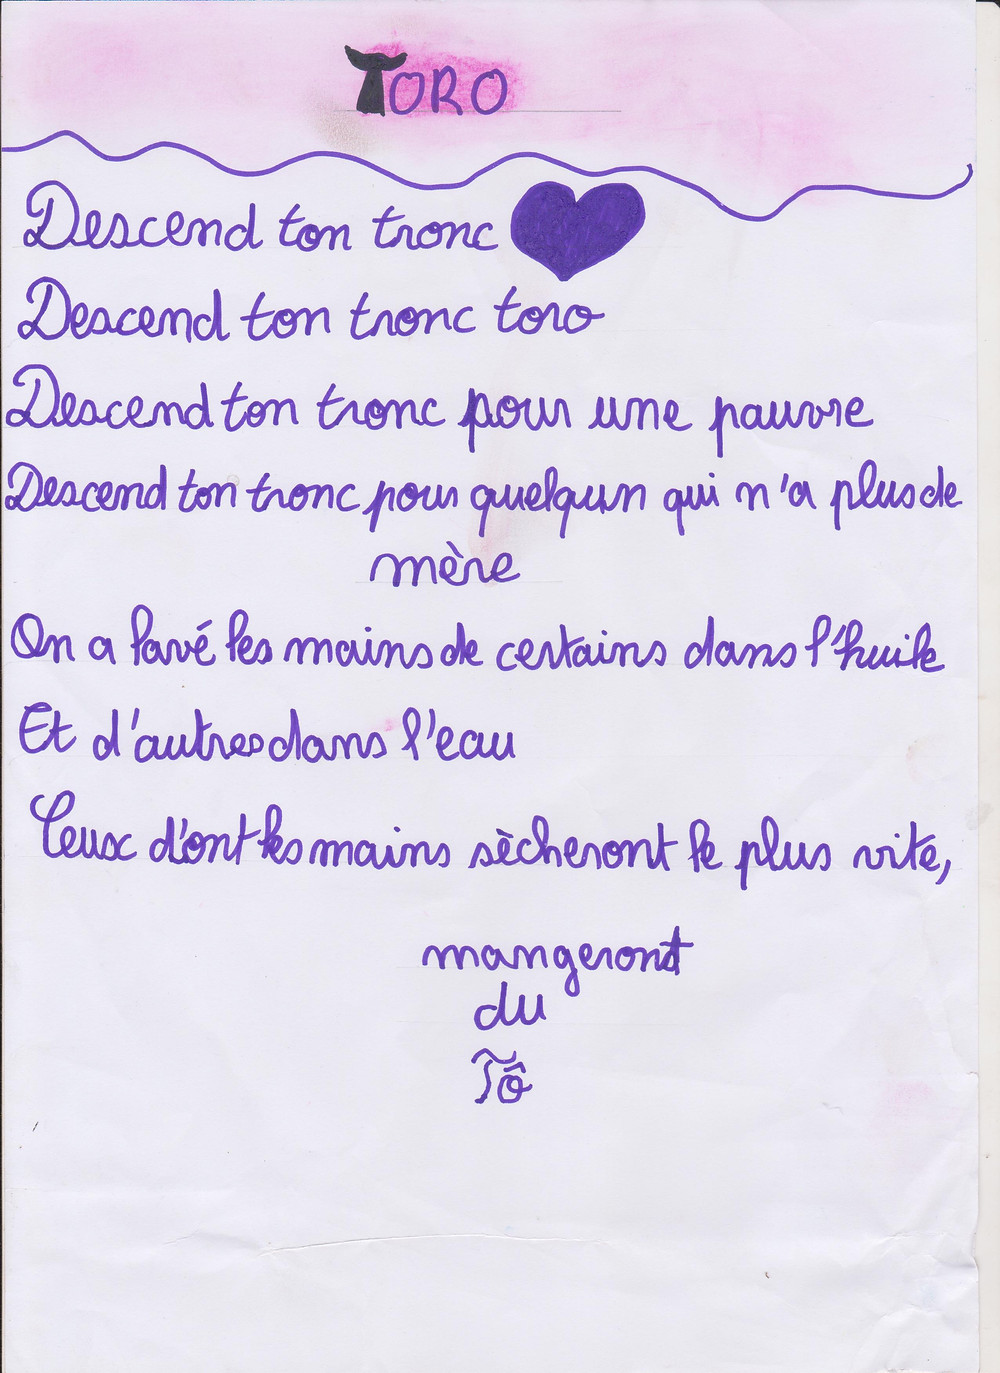 TORO
Descend ton tronc
Descend ton tronc toro
Descend ton tronc pour une pauvre
Descend ton tronc pour quelqun qui n'a plus de
mère
On a lavé les mains de certains dans l'huile
Et d'autres dans l'eau
Ceux d'ont les mains sècheront le plus vite,
mangeront
du
Tô